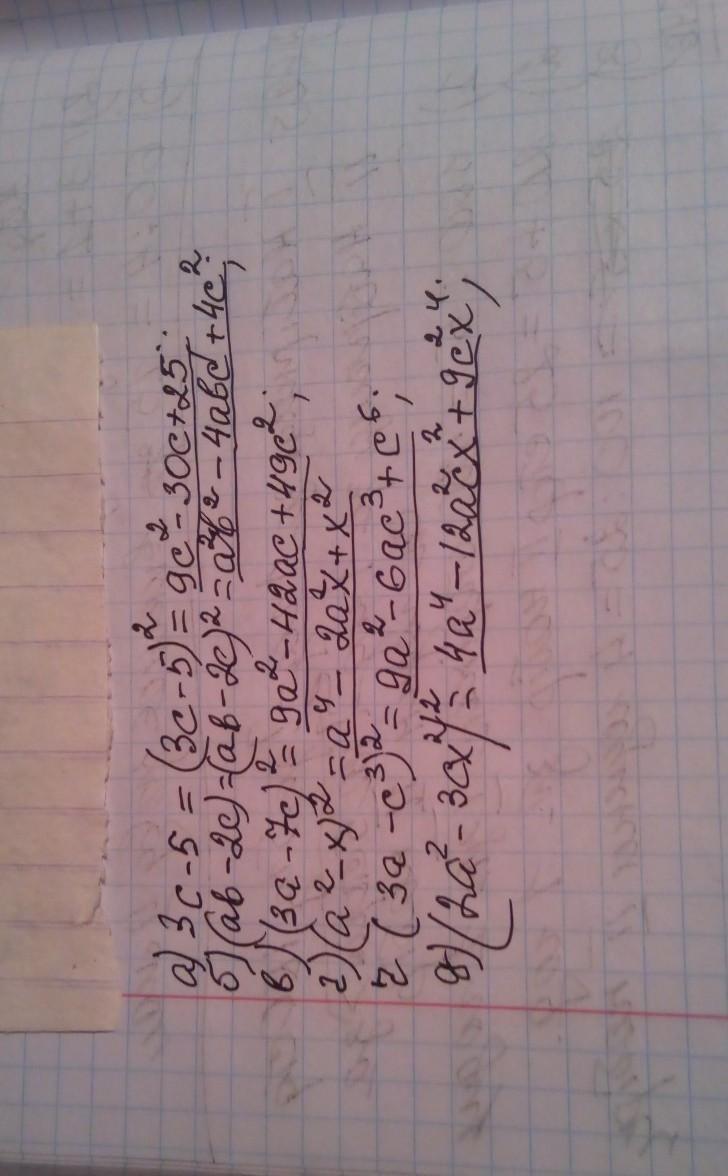 а) 3c-5 = (3c-5)² = 9c²-30c+25;
б) (ab-2c)=(ab-2c)²=a²b²-4abc+4c²;
в) (3a-7c)²=9a²-42ac+49c²;
г) (a²-x)²=a⁴-2a²x+x²
(3a-c³)²=9a²-6ac³+c⁶;
(2a²-3cx²)²=4a⁴-12a²cx²+9c²x⁴;